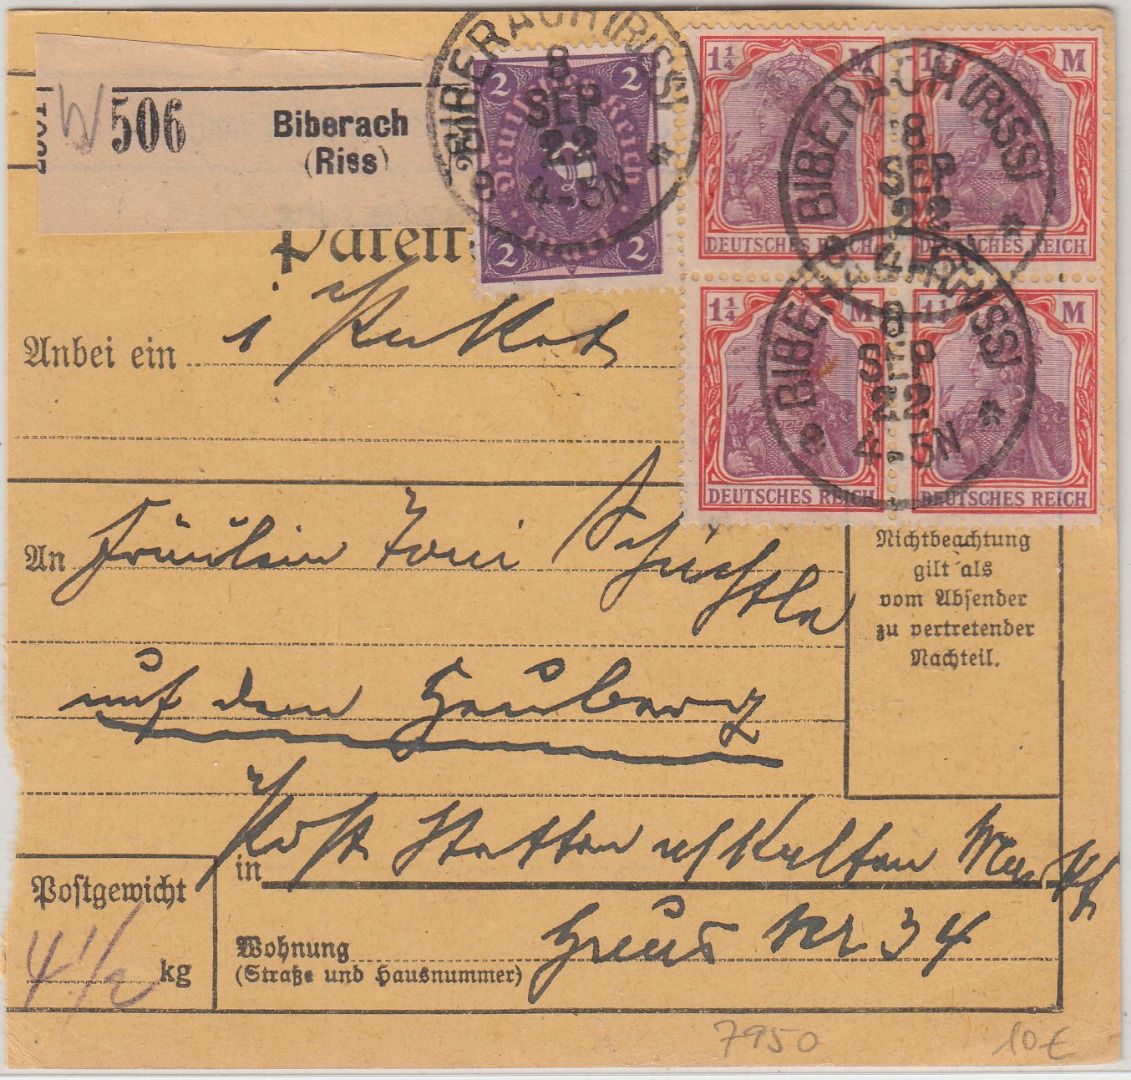 W 506 Biberach
(Riss)
BIBERACH (RISS)
8
SEP
22
4-5N
2 2
Deutsches Reich
2 2
1¼ M
DEUTSCHES REICH
1¼ M
DEUTSCHES REICH
1¼ M
DEUTSCHES REICH
1¼ M
DEUTSCHES REICH
BIBERACH (RISS)
8
SEP
22
BIBERACH (RISS)
8
SEP
22
4-5N
Anbei ein 1
An Fräulein Toni
auf dem Heuberg
in Post Stetten a/kalten Markt
Nichtbeachtung
gilt als
vom Absender
zu vertretender
Nachteil.
Postgewicht
4 1/2 kg
Wohnung
(Straße und Hausnummer)
Haus Nr 34
7950 10€